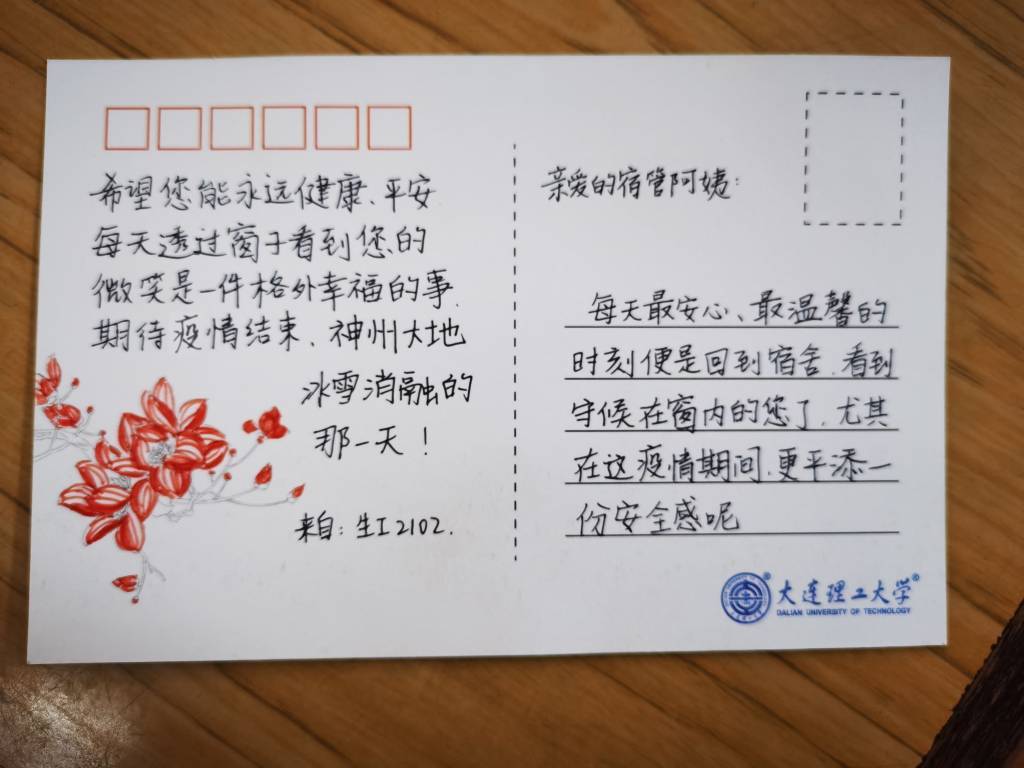 亲爱的宿管阿姨：
每天最安心、最温馨的
时刻便是回到宿舍，看到
守候在窗内的您了，尤其
在这疫情期间，更平添一
份安全感呢
希望您能永远健康、平安
每天透过窗子看到您的
微笑是一件格外幸福的事，
期待疫情结束、神州大地
冰雪消融的
那一天！
来自：生工2102.
大连理工大学
DALIAN UNIVERSITY OF TECHNOLOGY